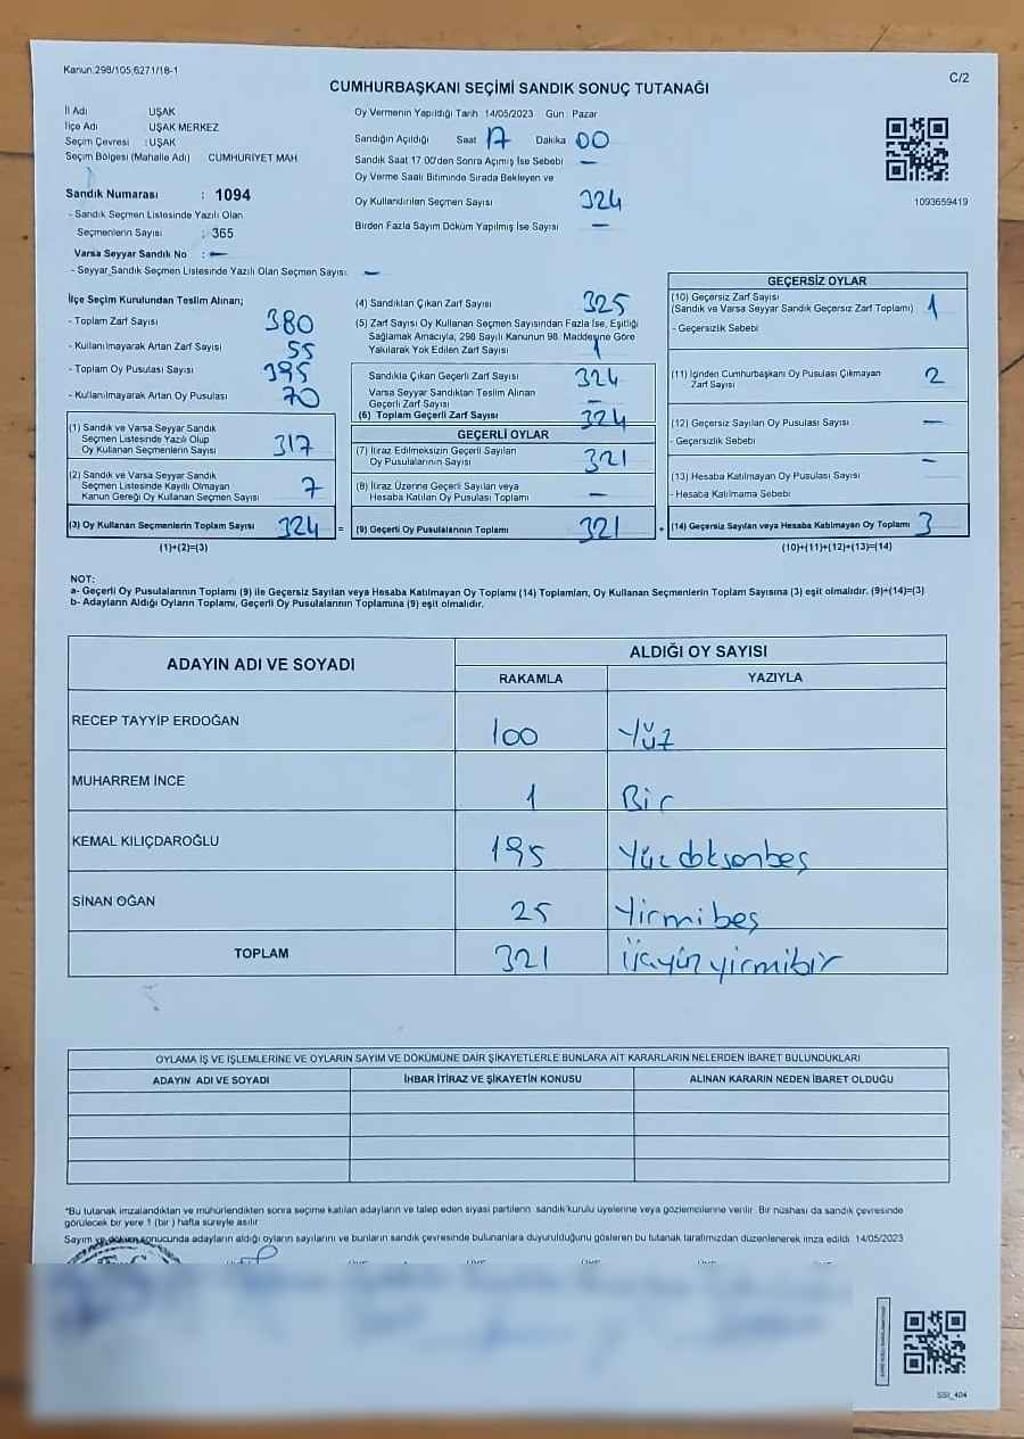 Kanun:298/105,6271/18-1
C/2
CUMHURBAŞKANI SEÇİMİ SANDIK SONUÇ TUTANAĞI
İl Adı UŞAK
İlçe Adı UŞAK MERKEZ
Seçim Çevresi : UŞAK
Seçim Bölgesi (Mahalle Adı) CUMHURİYET MAH
Sandık Numarası : 1094
- Sandık Seçmen Listesinde Yazılı Olan
Seçmenlerin Sayısı : 365
Varsa Seyyar Sandık No : —
- Seyyar Sandık Seçmen Listesinde Yazılı Olan Seçmen Sayısı: —
Oy Vermenin Yapıldığı Tarih 14/05/2023 Gün : Pazar
Sandığın Açıldığı Saat 17 Dakika 00
Sandık Saat 17.00'den Sonra Açımış İse Sebebi —
Oy Verme Saati Bitiminde Sırada Bekleyen ve
Oy Kullandırılan Seçmen Sayısı 324
Birden Fazla Sayım Döküm Yapılmış İse Sayısı —
1093659419
İlçe Seçim Kurulundan Teslim Alınan;
- Toplam Zarf Sayısı 380
- Kullanılmayarak Artan Zarf Sayısı 55
- Toplam Oy Pusulası Sayısı 395
- Kullanılmayarak Artan Oy Pusulası 70
(1) Sandık ve Varsa Seyyar Sandık
Seçmen Listesinde Yazılı Olup
Oy Kullanan Seçmenlerin Sayısı 317
(2) Sandık ve Varsa Seyyar Sandık
Seçmen Listesinde Kayıtlı Olmayan
Kanun Gereği Oy Kullanan Seçmen Sayısı 7
(3) Oy Kullanan Seçmenlerin Toplam Sayısı 324 =
(1)+(2)=(3)
(4) Sandıktan Çıkan Zarf Sayısı 325
(5) Zarf Sayısı Oy Kullanan Seçmen Sayısından Fazla İse, Eşitliği
Sağlamak Amacıyla, 298 Sayılı Kanunun 98. Maddesine Göre
Yakılarak Yok Edilen Zarf Sayısı 1
Sandıkla Çıkan Geçerli Zarf Sayısı 324
Varsa Seyyar Sandıktan Teslim Alınan
Geçerli Zarf Sayısı —
(6) Toplam Geçerli Zarf Sayısı 324
GEÇERLİ OYLAR
(7) İtiraz Edilmeksizin Geçerli Sayılan
Oy Pusulalarının Sayısı 321
(8) İtiraz Üzerine Geçerli Sayılan veya
Hesaba Katılan Oy Pusulası Toplamı —
(9) Geçerli Oy Pusulalarının Toplamı 321 +
GEÇERSİZ OYLAR
(10) Geçersiz Zarf Sayısı
(Sandık ve Varsa Seyyar Sandık Geçersiz Zarf Toplamı) 1
- Geçersizlik Sebebi
(11) İçinden Cumhurbaşkanı Oy Pusulası Çıkmayan
Zarf Sayısı 2
(12) Geçersiz Sayılan Oy Pusulası Sayısı —
- Geçersizlik Sebebi
(13) Hesaba Katılmayan Oy Pusulası Sayısı —
- Hesaba Katılmama Sebebi
(14) Geçersiz Sayılan veya Hesaba Katılmayan Oy Toplamı 3
(10)+(11)+(12)+(13)=(14)
NOT:
a- Geçerli Oy Pusulalarının Toplamı (9) ile Geçersiz Sayılan veya Hesaba Katılmayan Oy Toplamı (14) Toplamları, Oy Kullanan Seçmenlerin Toplam Sayısına (3) eşit olmalıdır. (9)+(14)=(3)
b- Adayların Aldığı Oyların Toplamı, Geçerli Oy Pusulalarının Toplamına (9) eşit olmalıdır.
ADAYIN ADI VE SOYADI
ALDIĞI OY SAYISI
RAKAMLA YAZIYLA
RECEP TAYYİP ERDOĞAN 100 Yüz
MUHARREM İNCE 1 Bir
KEMAL KILIÇDAROĞLU 195 Yüz doksanbeş
SİNAN OĞAN 25 Yirmibeş
TOPLAM 321 Üçyüzyirmibir
OYLAMA İŞ VE İŞLEMLERİNE VE OYLARIN SAYIM VE DÖKÜMÜNE DAİR ŞİKAYETLERLE BUNLARA AİT KARARLARIN NELERDEN İBARET BULUNDUKLARI
ADAYIN ADI VE SOYADI İHBAR İTİRAZ VE ŞİKAYETİN KONUSU ALINAN KARARIN NEDEN İBARET OLDUĞU
*Bu tutanak imzalandıktan ve mühürlendikten sonra seçime katılan adayların ve talep eden siyasi partilerin sandık kurulu üyelerine veya gözlemcilerine verilir. Bir nüshası da sandık çevresinde
görülecek bir yere 1 (bir) hafta süreyle asılır.
Sayım ve döküm sonucunda adayların aldığı oyların sayılarını ve bunların sandık çevresinde bulunanlara duyurulduğunu gösteren bu tutanak tarafımızdan düzenlenerek imza edildi. 14/05/2023
SSI_404